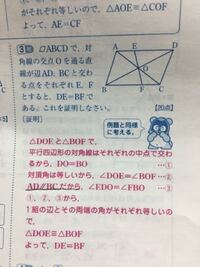 がそれぞれ等しいので、
△AOE≡△COF
よって、AE=CF
3 ▱ABCDで、対
角線の交点Oを通る直
線が辺AD、BCと交わ
る点をそれぞれE、F
とすると、DE=BFで
ある。これを証明しなさい。
【20点】
A E D
O
B F C
〔証明〕
例題と同様
に考える。
△DOEと△BOFで、
平行四辺形の対角線はそれぞれの中点で交わ
るから、DO=BO …①
対頂角は等しいから、∠DOE=∠BOF…②
AD//BCだから、∠EDO=∠FBO …③
①、②、③から、
1組の辺とその両端の角がそれぞれ等しいの
で、
△DOE≡△BOF
よって、DE=BF